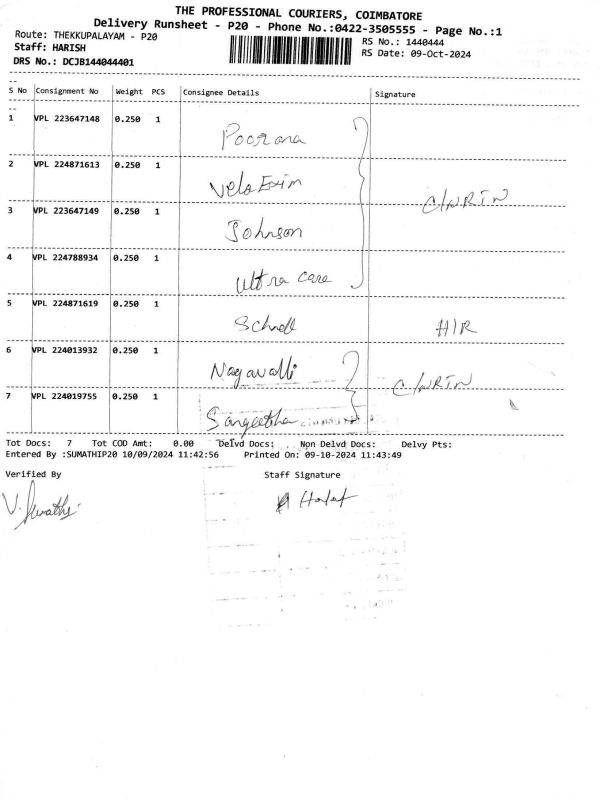 THE PROFESSIONAL COURIERS, COIMBATORE
Delivery Runsheet - P20 - Phone No.:0422-3505555 - Page No.:1
Route: THEKKUPALAYAM - P20
RS No.: 1440444
Staff: HARISH
RS Date: 09-Oct-2024
DRS No.: DCJB144044401
S No Consignment No Weight PCS Consignee Details Signature
1 VPL 223647148 0.250 1 Poorana
2 VPL 224871613 0.250 1 Vela Exim
C/NRTN
3 VPL 223647149 0.250 1 Johnson
4 VPL 224788934 0.250 1 Ultra care
5 VPL 224871619 0.250 1 Schnell H/R
6 VPL 224013932 0.250 1 Nagavalli
C/NRTN
7 VPL 224019755 0.250 1 Sangeetha
Tot Docs: 7 Tot COD Amt: 0.00 Delvd Docs: Non Delvd Docs: Delvy Pts:
Entered By :SUMATHIP20 10/09/2024 11:42:56 Printed On: 09-10-2024 11:43:49
Verified By Staff Signature